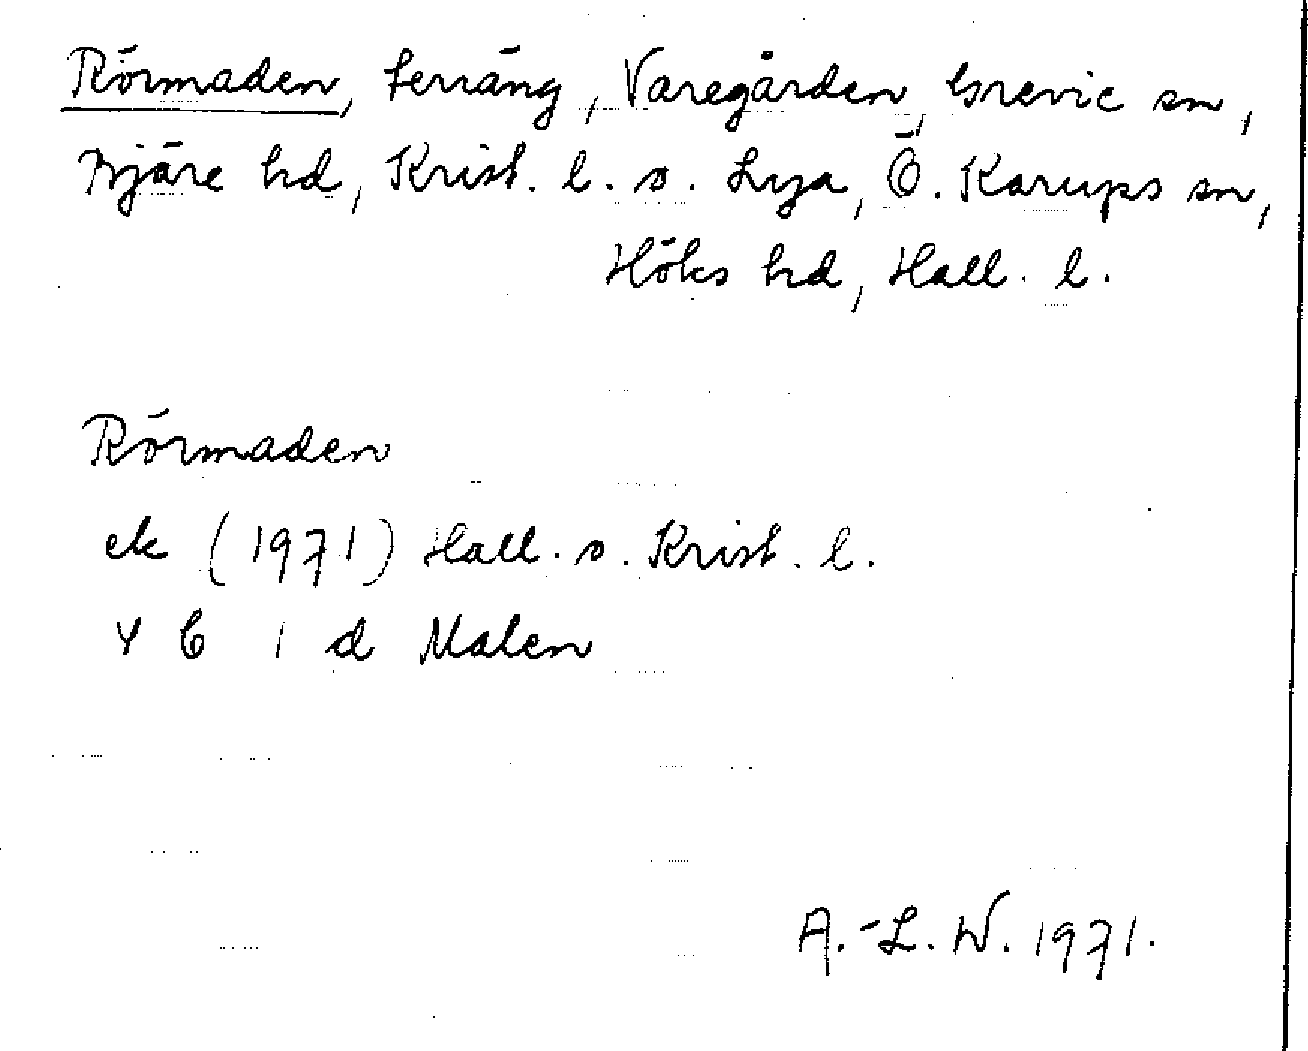 Rörmaden, terräng, Varegården, Grevie sn,
Bjäre hd, Krist. l. o. Lya, Ö. Karups sn,
Höks hd, Hall. l.
Rörmaden
ek (1971) Hall. o. Krist. l.
4 C 1 d Malen
A.-L. W. 1971.